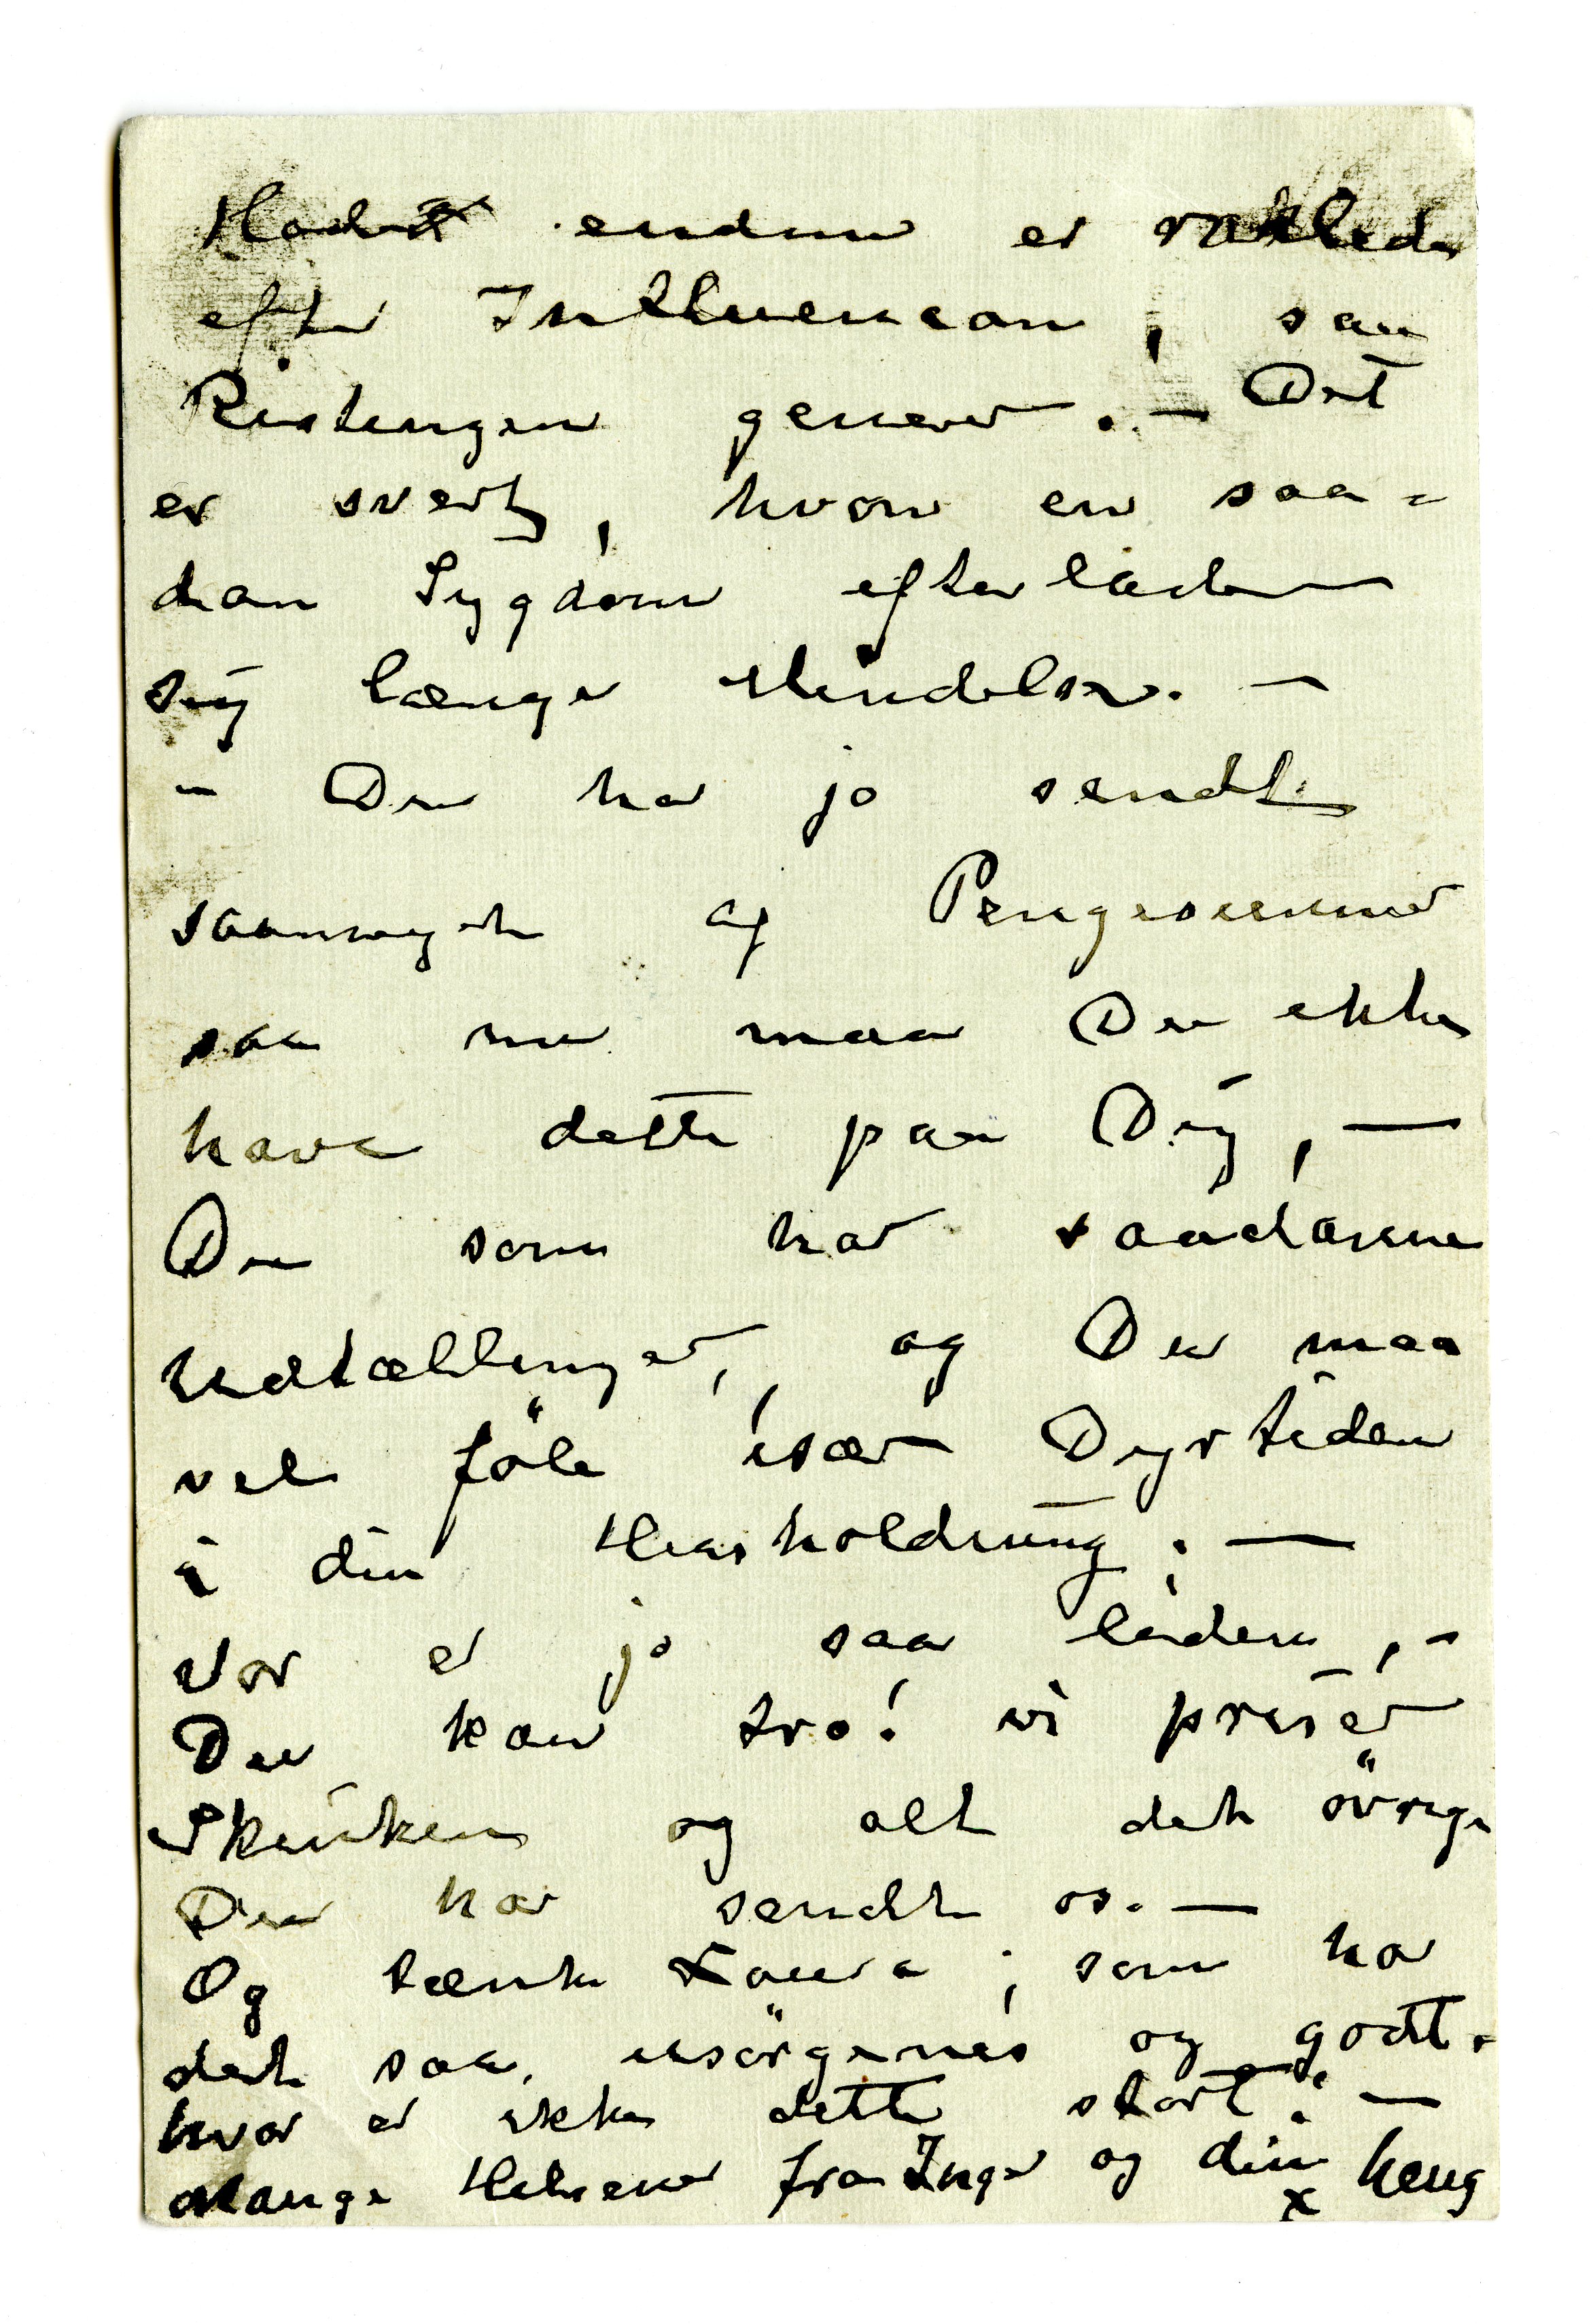 Hodet endnu er rakleder
efter Influensaen, saa
Ristingen generer. — Det
er svert, hvor en saa=
dan Sygdom efterlader
sig længe Mindelser. —
— Du har jo sendt
saameget af Pengesummer
saa nu maa Du ikke
have dette paa Dig, —
Du som har saadanne
Udtællinger, og Du maa
vel föle især Dyrtiden
i din Husholdning; —
Vor er jo saa liden, –
Du kan tro! vi priser
Skinken og alt det övrige
Du har sendt os. —
Og tænk Laura; som har
det saa usörgeries og godt.
hvor er ikke dette stort. —
Mange Hilsener fra Inga og din heng
x